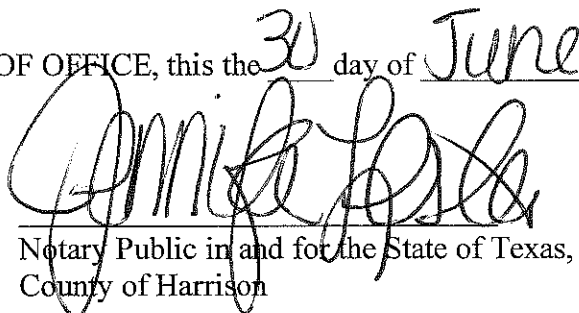 OF OFFICE, this the 30 day of June
Jennifer Lesler
Notary Public in and for the State of Texas,
County of Harrison